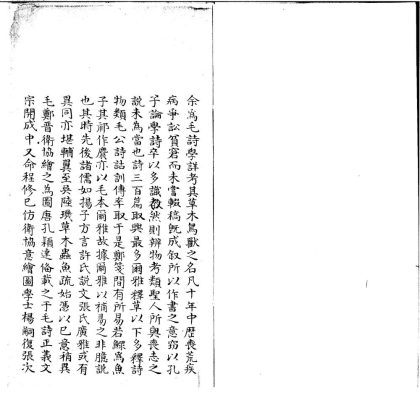 余為毛詩學詳考其草木鳥獸之名凡十年中歷喪荒疾
病爭訟貧窘而未嘗輟稿既成叙所以作書之意窃以孔
子論學詩卒以多識教然則辨物考類聖人所與喪志之
説未為當也詩三百篇取興最多爾雅釋草以下多釋詩
物類毛公詩詁訓傳率取于是鄭箋間有所易若鰥為魚
子其郝作麌亦以毛本爾雅故據爾雅以補易之非臆説
也其時先後諸儒如揚子方言許氏説文張氏廣雅或有
異同亦堪輔翼至吳陸璣草木蟲魚疏始憑以己意稍異
毛鄭晋衛協繪之為圖唐孔穎達偹載之于毛詩正義文
宗開成中又命程修己仿衛協意繪圖學士楊嗣復張次